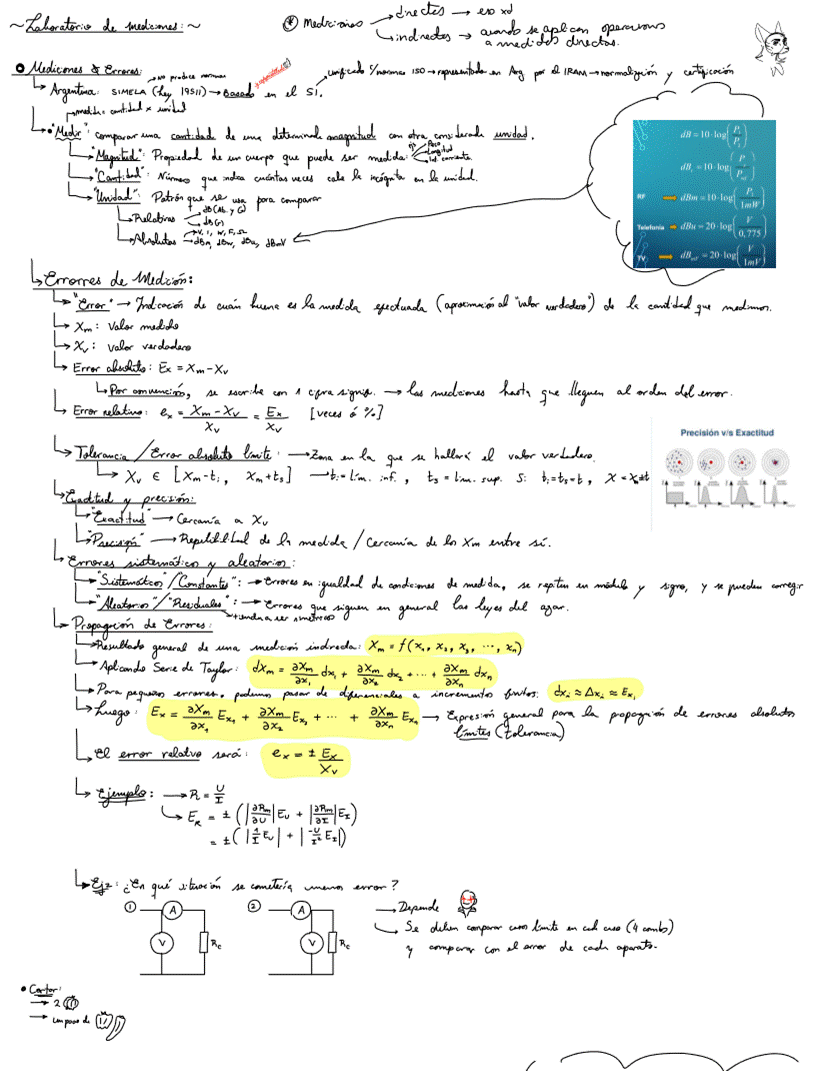 ~Laboratorio de mediciones:~
* Mediciones → directas → eso xd
→ indirectas → cuando se aplican operaciones
a medidas directas.
• Mediciones & Errores:
→ No produce normas
→ Argentina: SIMELA (Ley 19511) → Basado en el SI.
unificado c/normas ISO → representado en Arg por el IRAM → normalización y certificación
→ medida = cantidad x unidad
"Medir": comparar una cantidad de una determinada magnitud con otra considerada unidad.
→ "Magnitud": Propiedad de un cuerpo que puede ser medida:
ej → Peso
→ Longitud
→ Int. corriente
→ "Cantidad": Número que indica cuántas veces cabe la incógnita en la unidad.
→ "Unidad": Patrón que se usa para comparar
→ Relativas → dB(At. y G)
→ dB(r)
→ Absolutas → V, I, W, F, Ω
→ dBm, dBw, dBu, dBmV
dB = 10·log(P₂/P₁)
dBᵣ = 10·log(P/P_ref)
RF → dBm = 10·log(P₁/1mW)
Telefonía → dBu = 20·log(V/0,775)
TV → dB_mV = 20·log(V/1mV)
→ Errorres de Medición:
→ "Error" → Indicación de cuán buena es la medida efectuada (aproximación al "valor verdadero") de la cantidad que medimos.
→ Xm: Valor medido
→ Xv: Valor verdadero
→ Error absoluto: Ex = Xm - Xv
→ Por convención, se escribe con 1 cifra signif. → las mediciones hasta que lleguen al orden del error.
→ Error relativo: ex = (Xm - Xv)/Xv = Ex/Xv [veces ó %]
→ Tolerancia / Error absoluto límite: → Zona en la que se hallará el valor verdadero.
→ Xv ∈ [Xm - ti, Xm + ts] → ti = lím. inf., ts = lím. sup. Si ti = ts = t, X = Xm ± t
Precisión v/s Exactitud
→ Exactitud y precisión:
→ "Exactitud" → Cercanía a Xv
→ "Precisión" → Repetibilidad de la medida / Cercanía de los Xm entre sí.
→ Errores sistemáticos y aleatorios:
→ "Sistemáticos"/"Constantes": → Errores en igualdad de condiciones de medida, se repiten en módulo y signo, y se pueden corregir
→ "Aleatorios"/"Residuales": → Errores que siguen en general las leyes del azar.
→ tienden a ser simétricos
→ Propagación de Errores:
→ Resultado general de una medición indirecta: Xm = f(x₁, x₂, x₃, ⋯, xn)
→ Aplicando Serie de Taylor: dXm = ∂Xm/∂x₁ dx₁ + ∂Xm/∂x₂ dx₂ + ⋯ + ∂Xm/∂xn dxn
→ Para pequeños errores, podemos pasar de diferenciales a incrementos finitos: dxi ≈ Δxi ≈ Exi
→ Luego: Ex = ∂Xm/∂x₁ Ex₁ + ∂Xm/∂x₂ Ex₂ + ⋯ + ∂Xm/∂xn Exn → Expresión general para la propagación de errores absolutos
límites (tolerancia)
→ El error relativo será: ex = ± Ex/Xv
→ Ejemplo: → R = U/I
→ ER = ± (|∂Rm/∂U| EU + |∂Rm/∂I| EI)
= ± (|1/I EU| + |-U/I² EI|)
→ Ej2: ¿En qué situación se cometería menos error?
① A V Rc
② A V Rc
→ Depende
→ Se deben comparar casos límite en cada caso (4 comb)
y comparar con el error de cada aparato.
• Cortar:
→ 2
→ un poco de